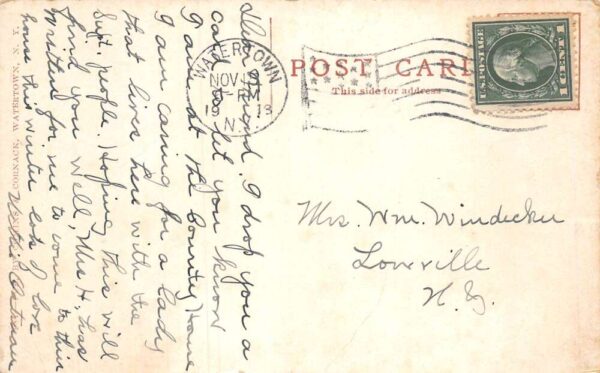 POST CARD
This side for address
U.S. POSTAGE
1 CENT 1
WATERTOWN
NOV
N.Y.
Mrs. Wm. Windecker
Lowville
N.Y.
Dear Friend. I drop you a
card to let you know
I am at the County Home
I am caring for a lady
that lives here with the
Supt. people. Hoping this will
find you well, Mrs H. has
written for me to come to this
house this winter lots of love
WATERTOWN, N. Y.